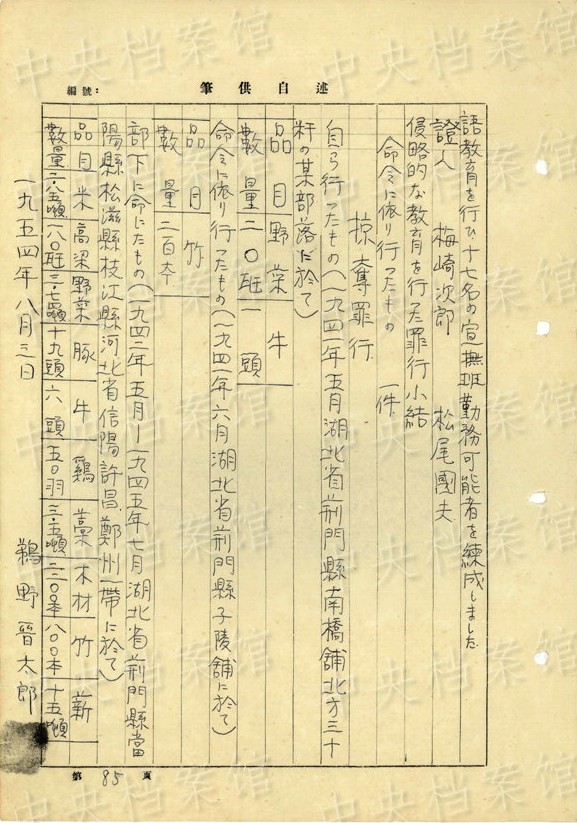 中央档案馆
編號:
筆供自述
語教育を行ひ十七名の宣撫班勤務可能者を練成しました
證人 梅崎次郎 松尾國夫
侵略的な教育を行った罪行小結
命令に依り行ったもの 一件
掠奪罪行
自ら行ったもの(一九四二年五月湖北省荊門縣南橋舖北方三十
粁の某部落に於て)
品目 野菜 牛
數量 二〇瓩 一頭
命令に依り行ったもの(一九四二年六月湖北省荊門縣子陵舖に於て)
品目 竹
數量 二百本
部下に命じたもの(一九四二年五月ー一九四五年七月湖北省荊門縣當
陽縣松滋縣枝江縣河北省信陽許昌鄭州一帶に於て)
品目 米 高梁 野菜 豚 牛 鶏 藁 木材 竹 薪
數量 二・八五噸 一八〇瓩 三・七噸 十九頭 六頭 五〇羽 三・五噸 二二〇〇本 八〇〇本 十五噸
一九五四年八月三日 鵜野晋太郎
第 85 頁